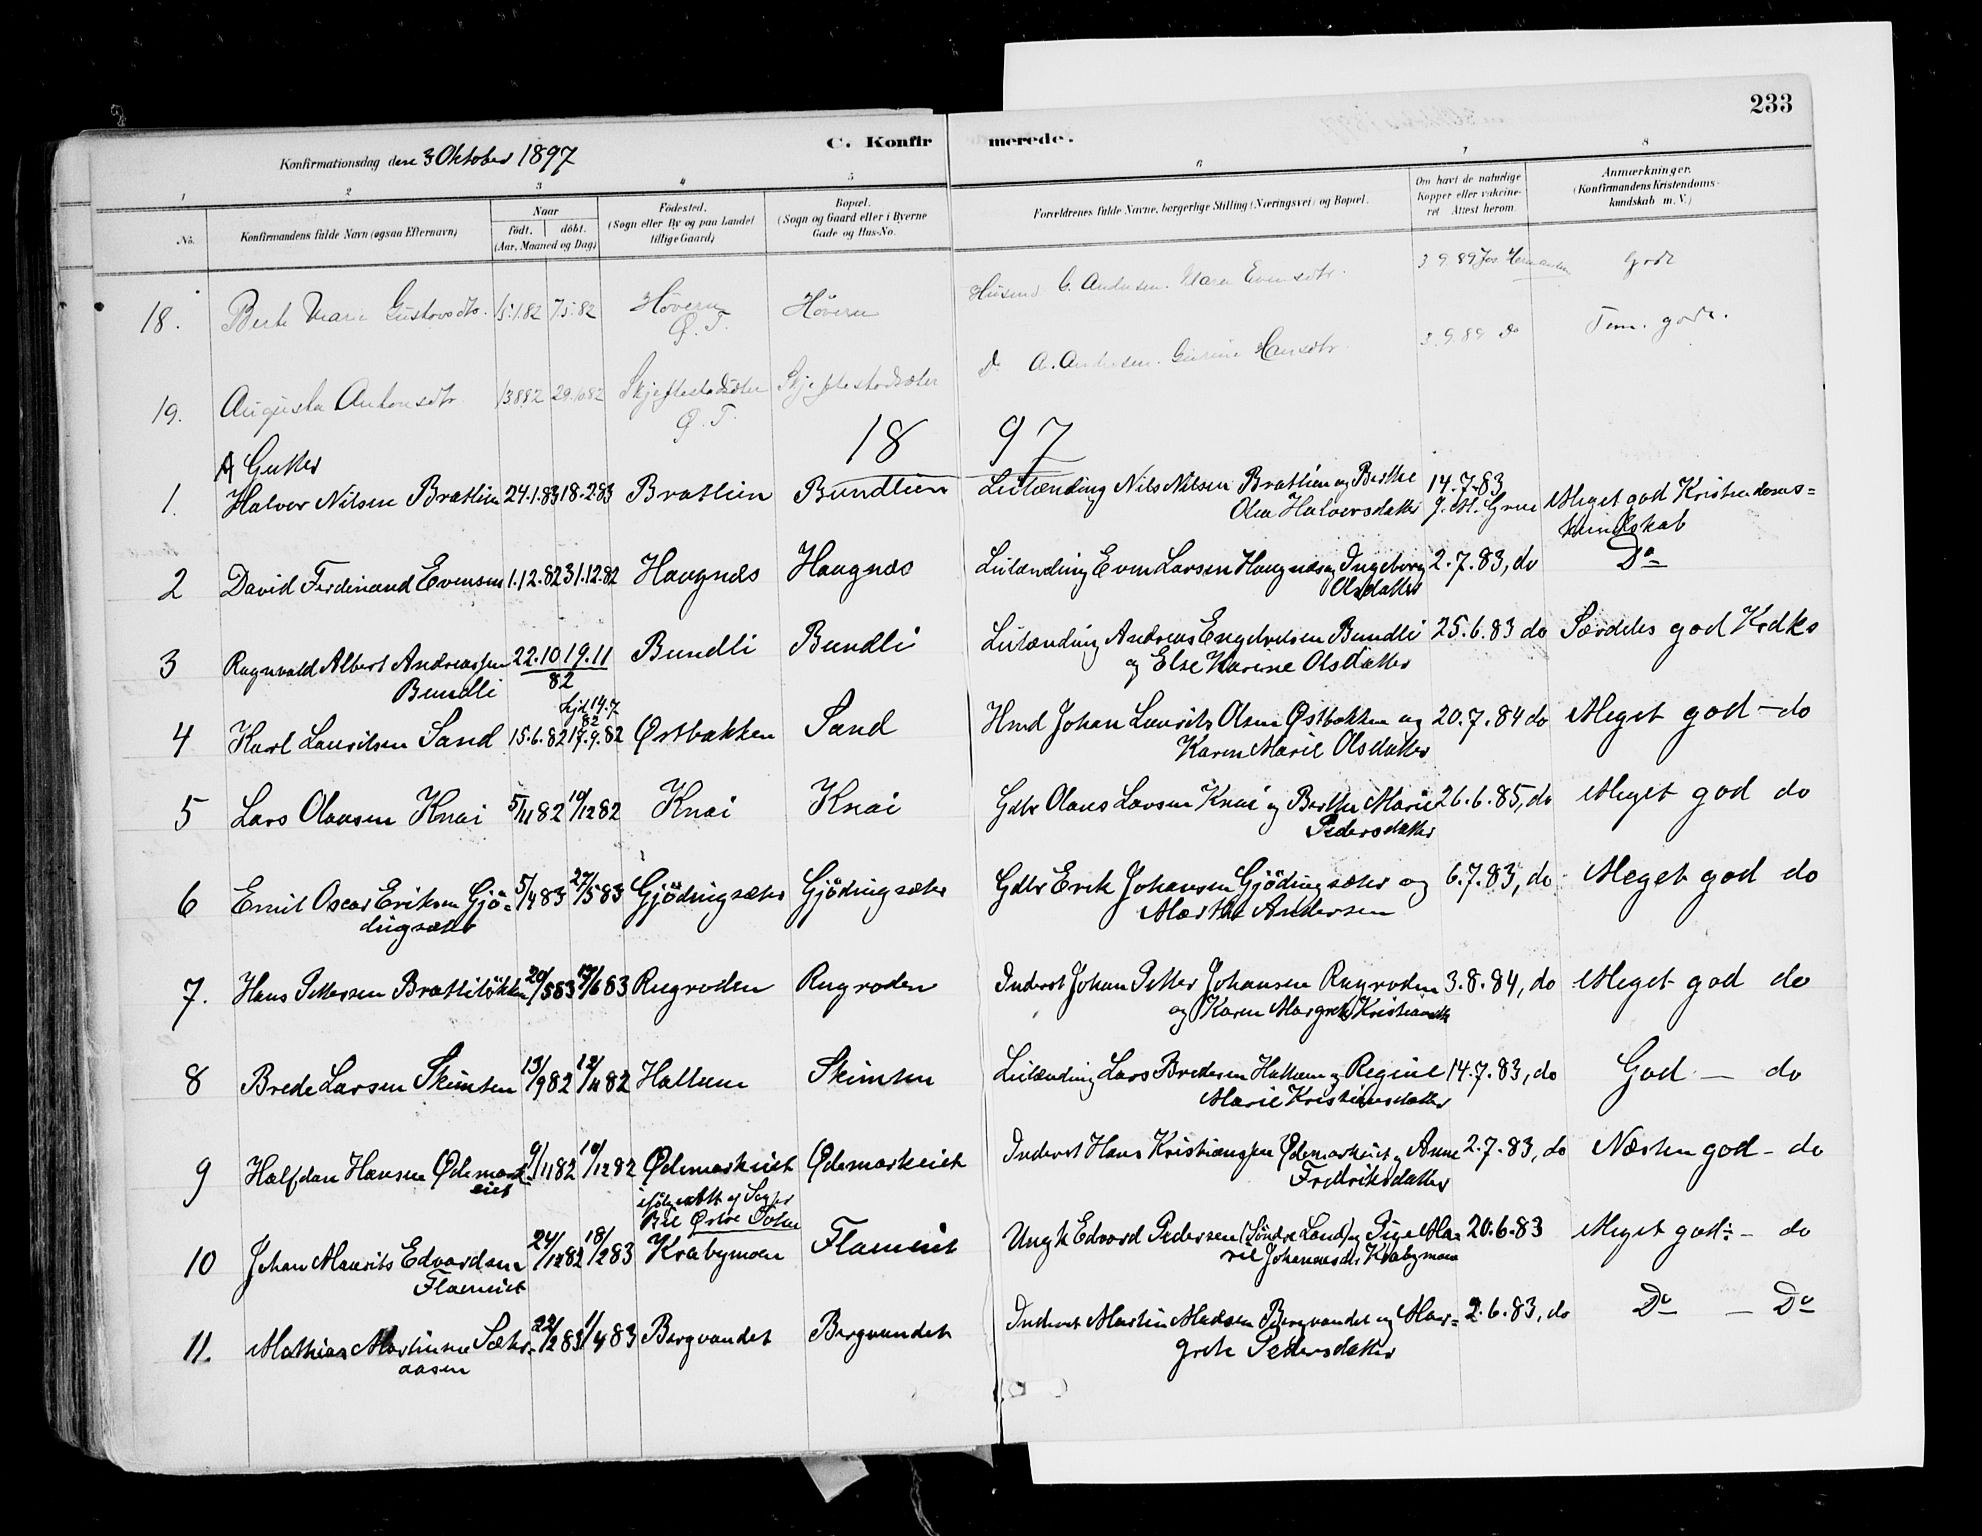 233
C. Konfirmerede.
Konfirmationsdag den 3 Oktober 1897
1 2 3 4 5 6 7 8
No. Konfirmandens fulde Navn (ogsaa Efternavn) Naar født. døbt. (Aar, Maaned og Dag) Fødested. (Sogn eller By og paa Landet tillige Gaard) Bopæl. (Sogn og Gaard eller i Byerne Gade og Hus-No. Forældrenes fulde Navne, borgerlige Stilling (Næringsvei) og Bopæl. Om havt de naturlige Kopper eller vakcineret. Attest herom. Anmærkninger. (Konfirmandens Kristendomskundskab m. V.)
18. Berte Marie Gustavsdtr. 15.1.82 7.5.82 Høvern Høvern Husmd G. Andersen. Maren Evensdtr. 3.9.89 god
Ø. T.
19. Augusta Antonsdtr. 13.8.82 29.10.82 Skjeftestadsæter Skjeftestadsæter Do A. Andersen. Gurine Hansdtr. 3.9.89 Do Tem. god.
Ø. T.
18 97
A Gutter
1. Halvor Nilsen Bratlien 24.1.83 18.2.83 Bratlien Bundlien Leilænding Nils Nilsen Bratlien og Berthe 14.7.83 Meget god Kristendoms=
Olea Halvorsdatter J. M. Grue kundskab
2 David Ferdinand Evensen 1.12.82 31.12.82 Haugnæs Haugnæs Leilænding Even Larsen Haugnæs og Ingeborg 2.7.83, do Do
Olsdatter
3 Ragnvald Albert Andreassen 22.10 19.11 Bundli Bundli Leilænding Andreas Engelvetsen Bundli 25.6.83 do Særdeles god Krdks
Bundli 82 og Else Karine Olsdatter
hjd 14.7
82
4 Karl Lauritsen Sand 15.6.82 17.9.82 Østbakken Sand Hmd Johan Laurits Olsen Østbakken og 20.7.84 do Meget god - do
Karen Marie Olsdatter
5 Lars Olausen Knai 5/11 82 10/12 82 Knai Knai Gdbr Olaus Larsen Knai og Berthe Marie 26.6.85, do Meget god do
Pedersdatter
6 Emil Oscar Eriksen Gjö= 5/4 83 27/5 83 Gjödingsæter Gjödingsæter Gdbr Erik Johansen Gjödingsæter og 6.7.83, do Meget god do
dingsæter Marthe Andersen
7. Hans Pettersen Brattiløkken 20/5 83 17/6 83 Rugroden Rugroden Inderst Johan Petter Johansen Rugroden 3.8.84, do Meget god do
og Karen Margrete Kristiansdtr
8 Brede Larsen Skimten 13/9 82 12/11 82 Hattum Skimten Leilænding Lars Bredesen Hattum og Regine 14.7.83, do God — do
Marie Kristiansdatter
9 Halfdan Hansen Ødemark= 9/11 82 10/12 82 Ødemarkeiet Ødemarkeiet Inderst Hans Kristiansen Ødemarkeiet og Anne 2.7.83, do Næsten god - do
eiet Fredriksdatter
ifølge att af Sogpr
10 Johan Maurits Edvardsen 24/12 82 18/2 83 Krabymoen Flaeneiet Ungk Edvard Pedersen (Søndre Land) og Pige Ma= 20.6.83 Meget god÷ - do
Flaeneiet ren Johannesdtr Krabymoen
11. Mathias Martinsen Sæter= 22/2 83 1/4 83 Bergvandet Bergvandet Inderst Martin Madsen Bergvandet og Mar= 2.6.83, do Do — Do
aasen grete Pedersdatter